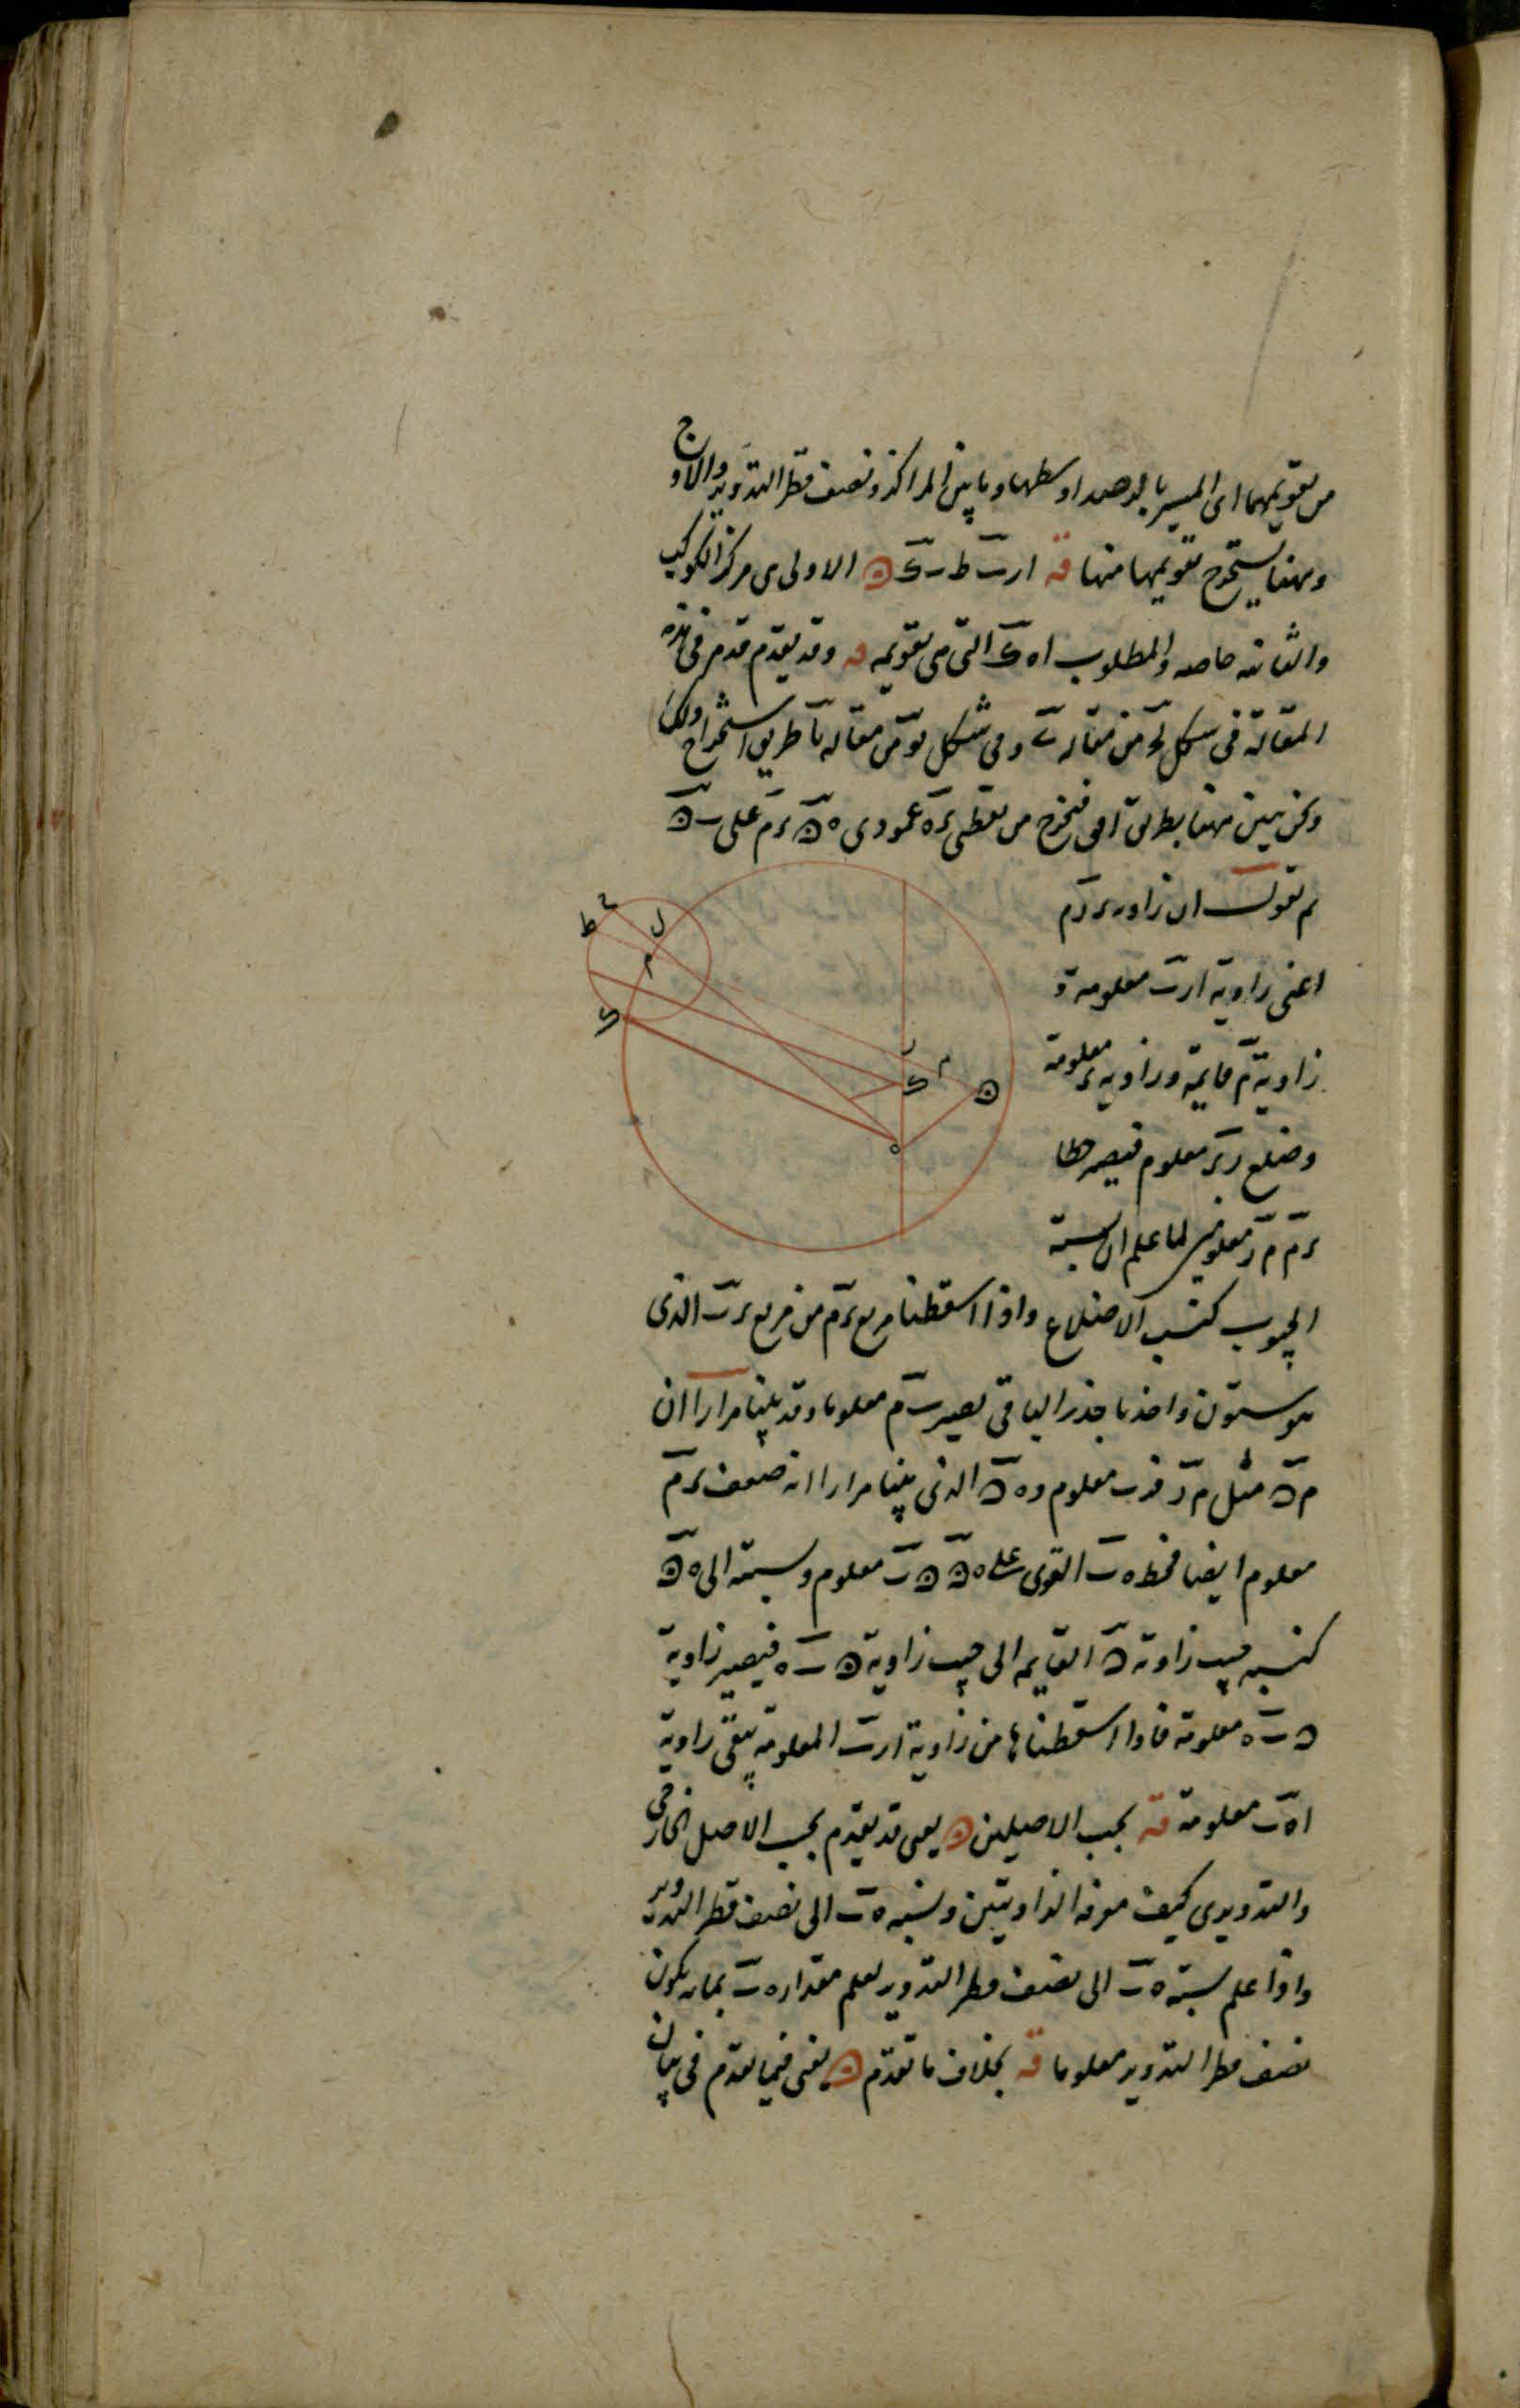 من تقويمهما اى المسير بالوصد اوسطها وما بين المراكز ونصف قطر التدوير والاوج
وههنا يستخرج تقويمها منها قه ارب ط ب ك ه الاولى هى مركز الكوكب
والثانية خاصه والمطلوب اه ك التى هى تقويمه قه وقد يقدم قدم فى هذه
المقالة فى شكل من مقاله وفى شكل من مقاله يا طريق استخراج ذلك
ونحن نبين ههنا بطريق اخر فنخرج من نقطتى ى ه عمودى ه ن ى م على ب ن
ثم نقول ان زاويه ى ر م
اعنى زاوية ارب معلومة و
زاوية م قايمة وزاويه ى معلومة
وضلع رى معلوم فيصير خطا
ى م م ر معلومين لما علم ان نسبة
الجيوب كنسب الاضلاع واذا اسقطنا مربع ى م من مربع ى ب الذى
هو ستون واخذنا جذر الباقى يصير ب م معلوما وقد بينا مرارا ان
م ن مثل م ر فرب معلوم و ه ن الذى بينا مرارا انه ضعف ى م
معلوم ايضا فخط ه ب القوى على ه ن ن ب معلوم ونسبته الى ه ن
كنسبه جيب زاوية ن القايمه الى جيب زاوية ن ب ه فيصير زاوية
ن ب ه معلومة فاذا اسقطناها من زاوية ارب المعلومة يبقى زاوية
اه ب معلومة قه بحسب الاصلين ه يعنى قد يقدم بحسب الاصل الخارجى
والتدويرى كيف معرفه الزاويتين ونسبه ه ب الى نصف قطر التدوير
واذا علم نسبة ه ب الى نصف قطر التدوير يعلم مقدار ه ب بما به يكون
نصف قطر التدوير معلوما قه بخلاف ما تقدم ه يعنى فيما تقدم فى بيان
ح
ط
ل
م
ك
ر
م
ك
ن
ه